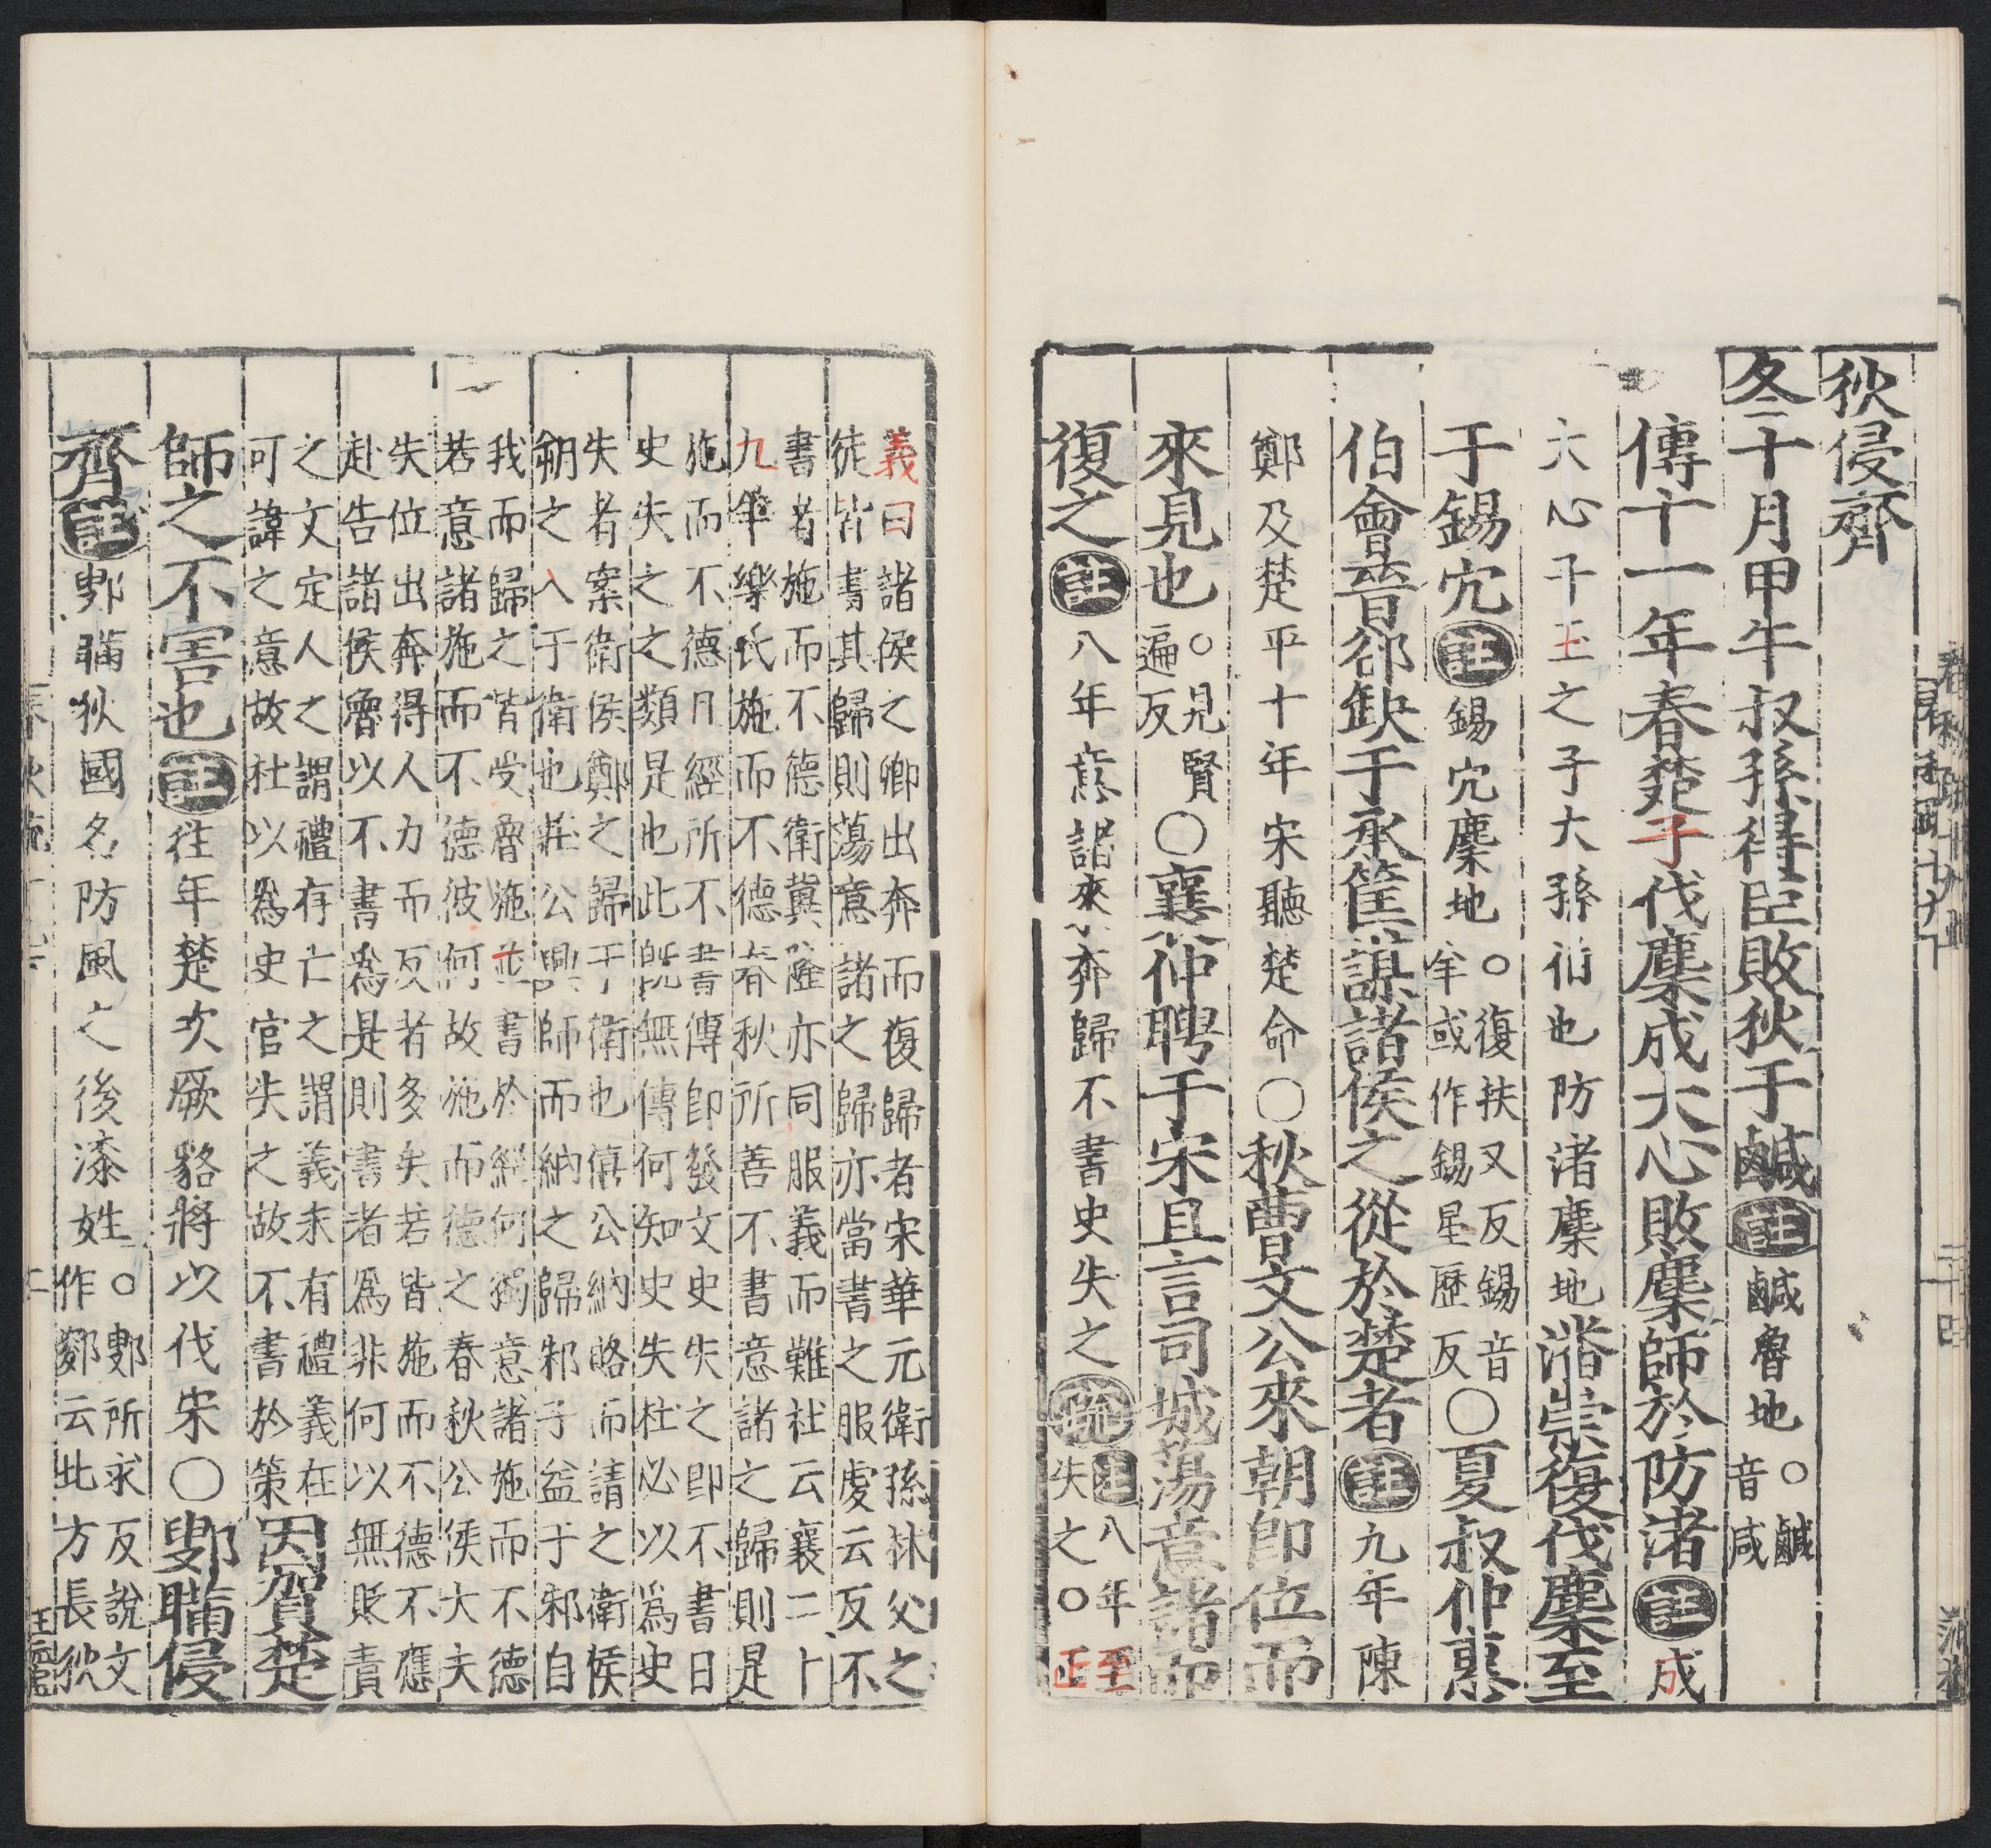 狄侵齊
冬十月甲午叔孫得臣敗狄于鹹註鹹魯地○鹹音咸
傳十一年春楚子伐麇成大心敗麇師於防渚註成
大心子玉之子大孫伯也防渚麇地潘崇復伐麇至
于錫穴註錫穴麇地○復扶又反錫音羊或作鍚星歷反○夏叔仲惠
伯會晉郤缺于承筐謀諸侯之從於楚者註九年陳
鄭及楚平十年宋聽楚命○秋曹文公來朝即位而
來見也○見賢遍反○襄仲聘于宋且言司城蕩意諸而
復之註八年意諸來奔歸不書史失之疏註八年至失之○正
義曰諸侯之卿出奔而復歸者宋華元衛孫林父之
徒皆書其歸則蕩意諸之歸亦當書之服虔云反不
書者施而不德衛冀隆亦同服義而難杜云襄二十
九年樂氏施而不德春秋所善不書意諸之歸則是
施而不德凡經所不書傳即發文史失之即不書日
史失之之類是也此既無傳何知史失杜必以為史
失者案衛侯鄭之歸于衛也僖公納賂而請之衛侯
朔之入于衛也莊公興師而納之歸邾子益于邾自
我而歸之皆受魯施並書於經何獨意諸施而不德
若意諸施而不德彼何故施而德之春秋公侯大夫
失位出奔得人力而反者多矣若皆施而不德不應
赴告諸侯魯以不書為是則書者為非何以無貶責
之文定人之謂禮存亡之謂義未有禮義在
可諱之意故杜以為史官失之故不書於策因賀楚
師之不害也註往年楚次厥貉將以伐宋○鄋瞞侵
齊註鄋瞞狄國名防風之後漆姓○鄋所求反說文作鄋云北方長狄